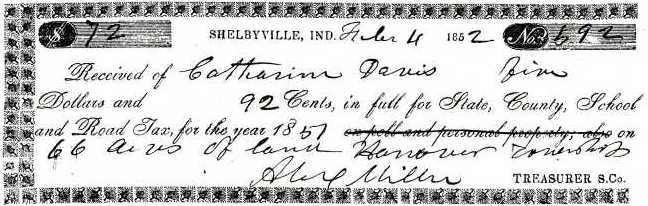 $ 72 SHELBYVILLE, IND. Feb 4 1852 No. 692
Received of Catharine Davis five
Dollars and 92 Cents, in full for State, County, School
and Road Tax, for the year 1851 on poll and personal property; also on
66 acres of land Hanover Township
Alex Miller TREASURER S. Co.